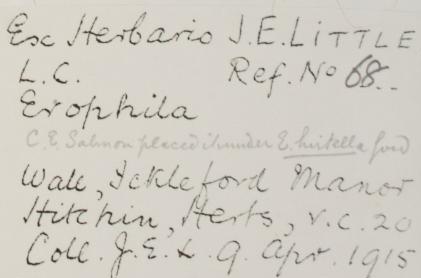 Ex Herbario J.E.LITTLE
L.C. Ref. No 68..
Erophila
C.E. Salmon placed it under E. hirtella Jord
Wall, Ickleford Manor
Hitchin, Herts, v.c. 20
Coll. J.E.L. 9. Apr. 1915